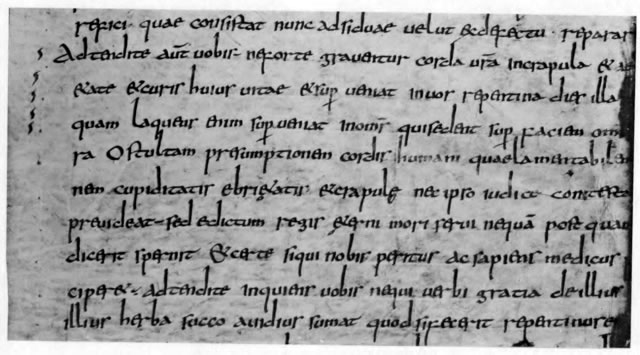 refici. quae consistat nunc adsiduae velut & defectu. reparar
Adtendite aut vobis neforte graventur corda vra incrapula & 
&ate & curis huius vitae & sup veniat in vos repentina dies illa
quam laqueus enim sup veniat in oms qui sedent sup faciem om
ra O stultam presumptionem cordis humani quae lamentabilem
nem cupiditatis ebri&atis & crapule nec ipso iudice contesta
prevideat. sed edictum regis &erni mori servi nequa post quam
dicerit spernit & certe siqui nobis peritus ac sapiens medicus
cipere. adtendite inquiens vobis nequi verbi gratia de illius
illius herba succo avidius sumat quod si fecerit repentinus